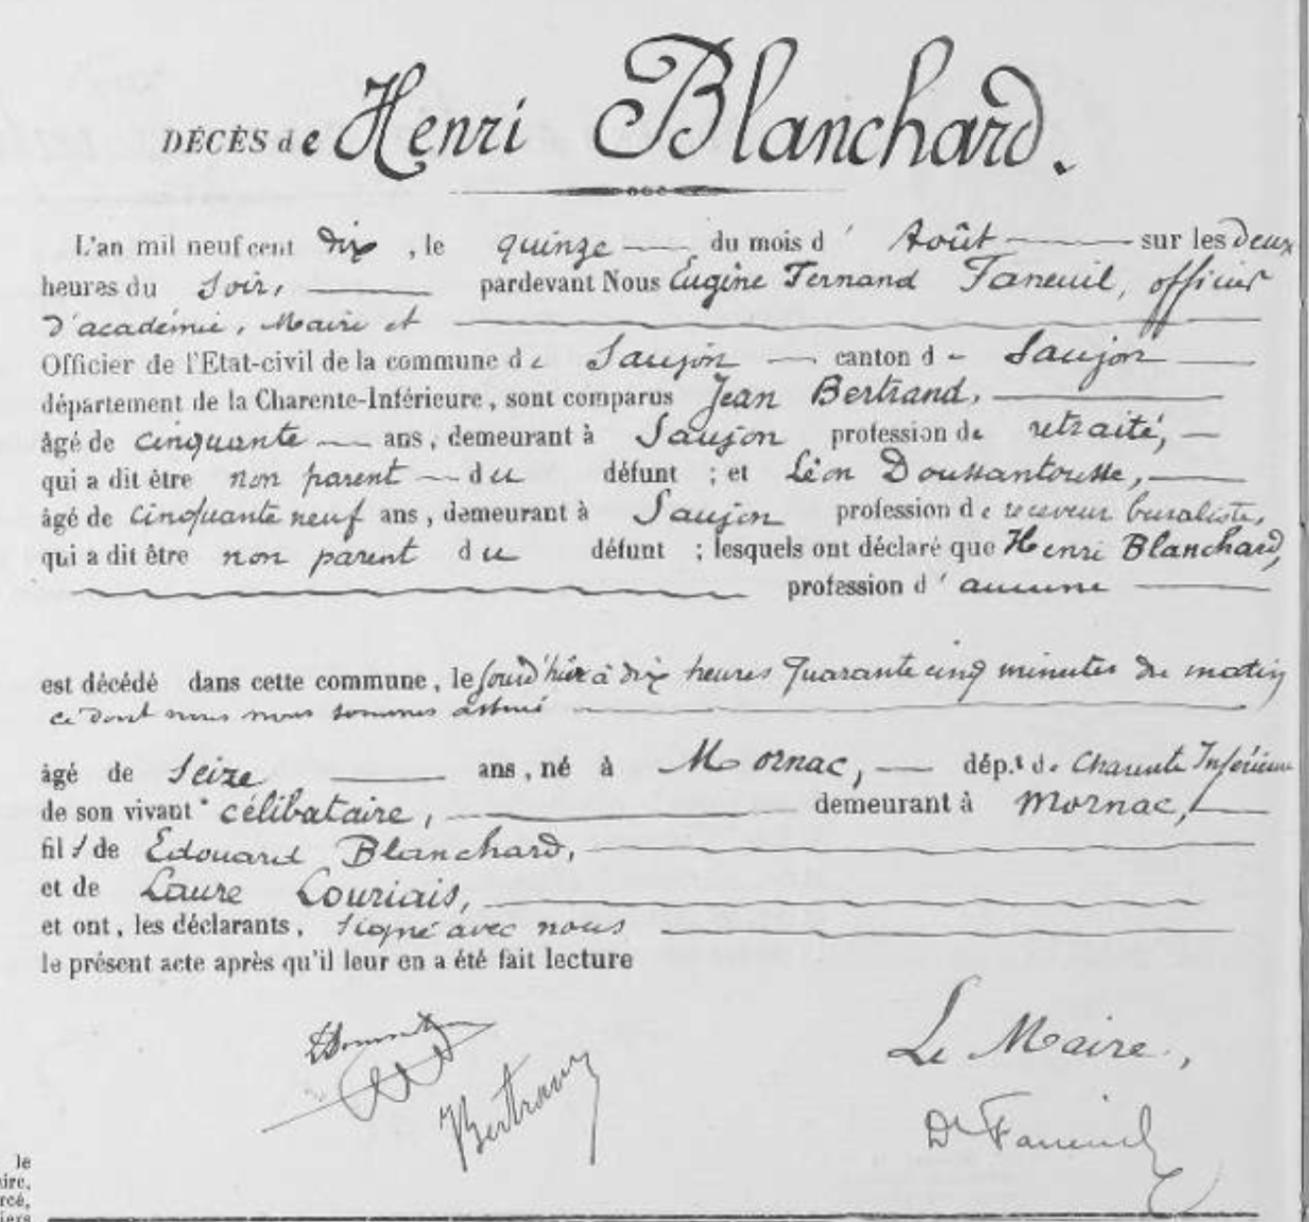 DÉCÈS de Henri Blanchard.
L'an mil neuf cent dix, le quinze du mois d' Août sur les Deux
heures du Soir, pardevant Nous Eugène Fernand Faneuil, officier
d'académie, Maire et
Officier de l'Etat-civil de la commune de Saujon canton de Saujon
département de la Charente-Inférieure, sont comparus Jean Bertrand,
âgé de cinquante ans, demeurant à Saujon profession de retraité,
qui a dit être non parent du défunt ; et Léon Doussantousse,
âgé de cinquante neuf ans, demeurant à Saujon profession de receveur buraliste,
qui a dit être non parent du défunt ; lesquels ont déclaré que Henri Blanchard,
profession d' aucune
est décédé dans cette commune, le jourd'hier à dix heures quarante cinq minutes du matin
ce dont nous nous sommes assuré
âgé de Seize ans, né à Mornac, dép.t de Charente Inférieure
de son vivant célibataire, demeurant à Mornac,
fils de Edouard Blanchard,
et de Laure Couriais,
et ont, les déclarants, signé avec nous
le présent acte après qu'il leur en a été fait lecture
Le Maire,
Bertrand
Dr Faneuil
le
aire,
rcé,
iers